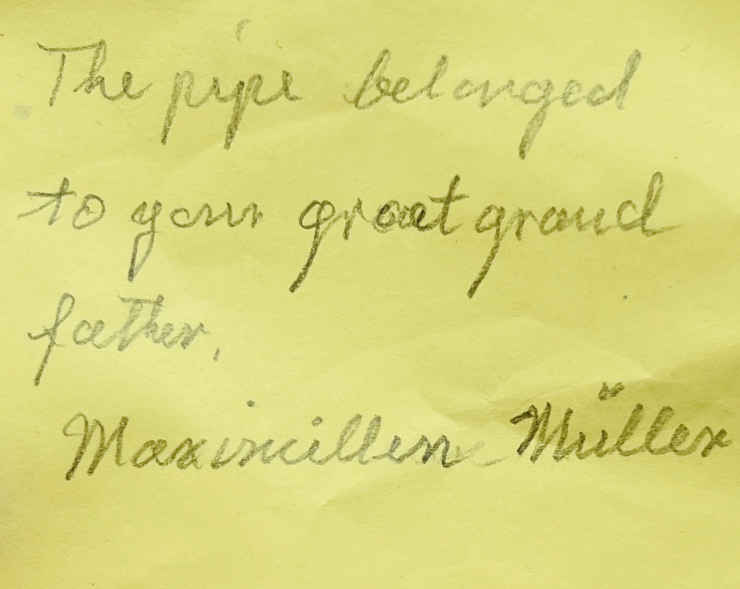 The pipe belonged
to your great grand
father,
Maximillen Müller